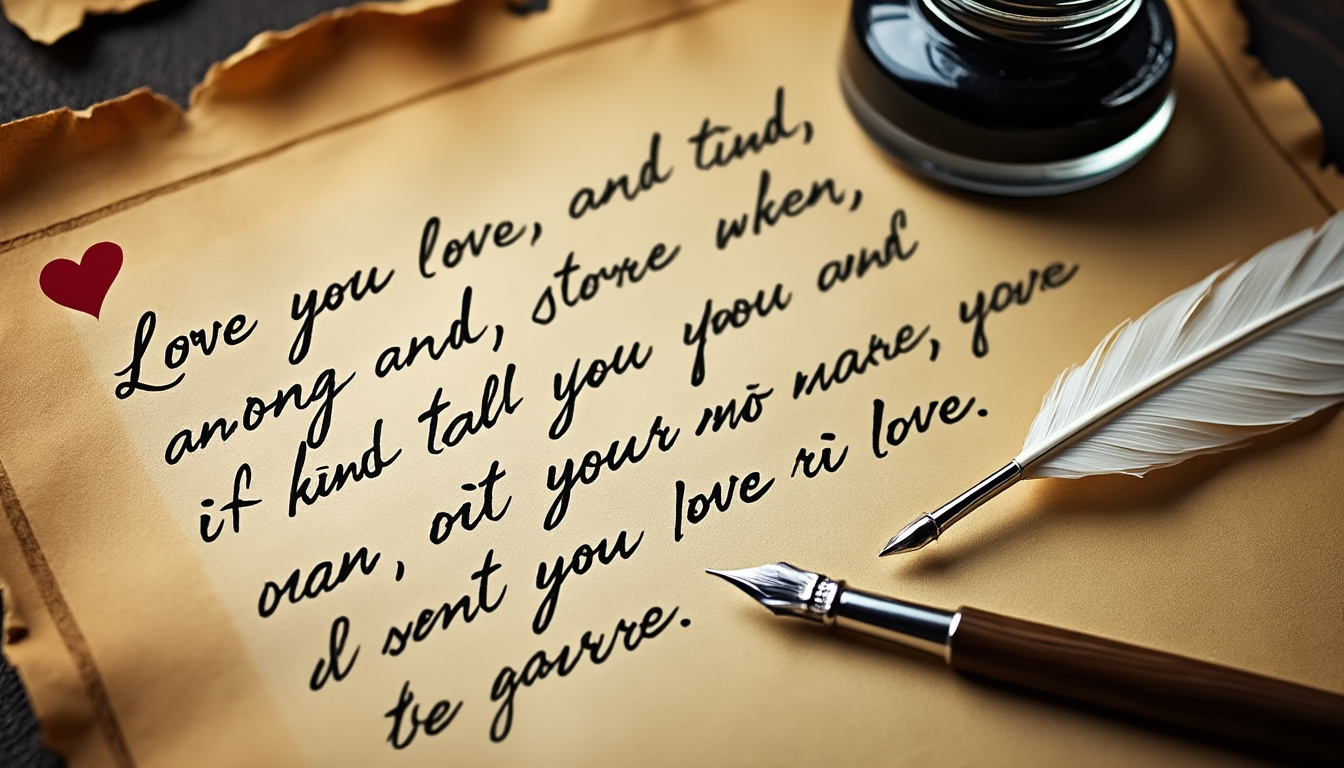 Love you love, and tind,
among and, store when,
if kind tall you yoou and
oran, oit your mo mare, yove
I sent you love ri love.
be gavrre.